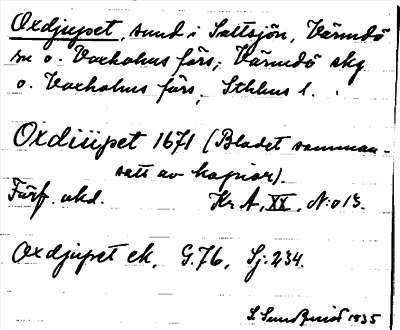 Oxdjupet, sund i Saltsjön, Värmdö
sn o. Vaxholms förs., Värmdö skg
o. Vaxholms förs, Sthlms l.
Oxdiüpet 1671 (Bladet samman-
satt av kopior).
Förf. okd. Kr. A, XX, N:o 13.
Oxdjupet ek. G. 76, Sj. 234.
S. Sundquist 1935